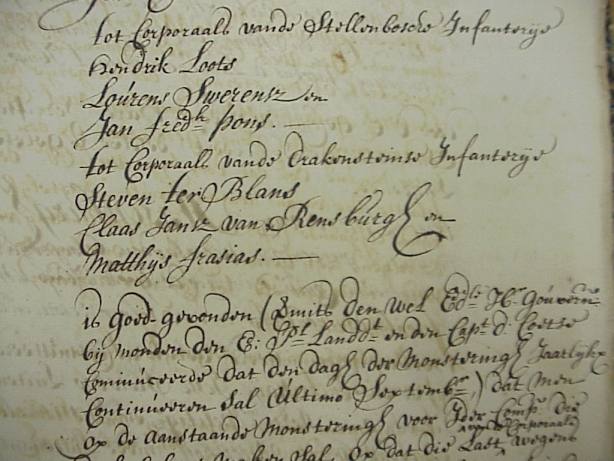 tot Corporaals vande Stellenbosche Infanterije
Hendrik Loots
Lourens Swerensz en
Jan Fredk Pons.
tot Corporaals vande Drakensteinse Infanterije
Steven ter Blans
Claas Jansz van Rensburgh en
Matthijs frasias.
is goed gevonden (Emits den wel Edle Hr Gouvern
bij monden den E: Landdt en den Capt d: Coetse
Commiceerde dat den dagh der Monsteringh Jaarlijkx
Continueeren sal Ultimo Septembr,) dat men
op de aanstaande Monsteringh voor Jder Compe die
sal, op dat die Last wegens